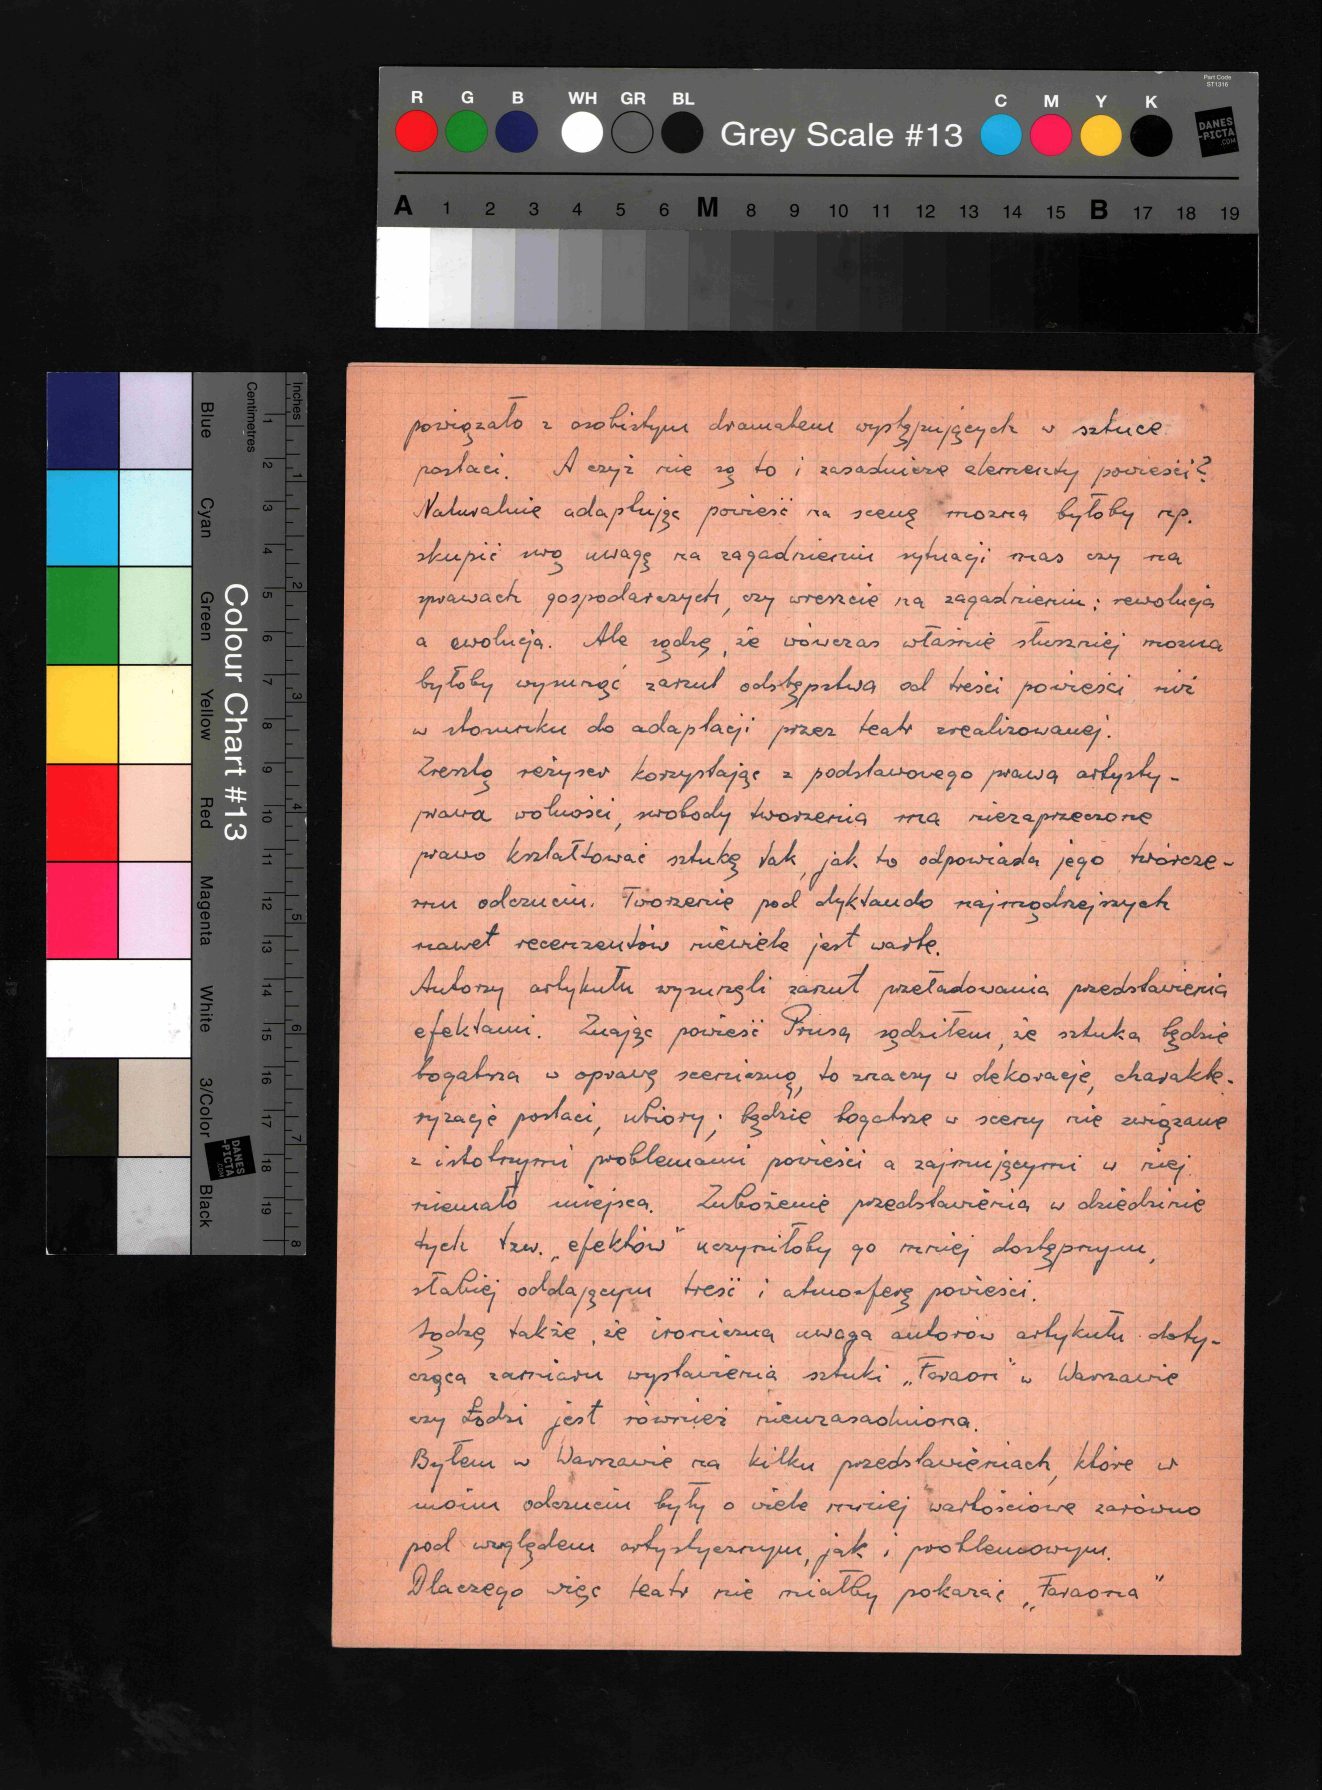 Part Code
ST1316
R G B WH GR BL Grey Scale #13 C M Y K
DANES
-PICTA
.COM
A 1 2 3 4 5 6 M 8 9 10 11 12 13 14 15 B 17 18 19
Colour Chart #13
Blue Cyan Green Yellow Red Magenta White 3/Color Black
Centimetres 1 2 3 4 5 6 7 8 9 10 11 12 13 14 15 16 17 18 19
Inches 1 2 3 4 5 6 7 8
DANES
-PICTA
.COM
powiązało z osobistym dramatem występujących w sztuce
postaci. A czyż nie są to i zasadnicze elementy powieści?
Naturalnie adaptując powieść na scenę można byłoby np.
skupić swą uwagę na zagadnieniu sytuacji mas czy na
sprawach gospodarczych, czy wreszcie na zagadnieniu: rewolucja
a ewolucja. Ale sądzę, że wówczas właśnie słuszniej można
byłoby wysunąć zarzut odstępstwa od treści powieści niż
w stosunku do adaptacji przez teatr zrealizowanej.
Zresztą reżyser korzystając z podstawowego prawa artysty -
prawa wolności, swobody tworzenia ma niezaprzeczone
prawo kształtować sztukę tak, jak to odpowiada jego twórcze-
mu odczuciu. Tworzenie pod dyktando najmądrzejszych
nawet recenzentów niewiele jest warte.
Autorzy artykułu wysunęli zarzut przeładowania przedstawienia
efektami. Znając powieść Prusa sądziłem, że sztuka będzie
bogatsza w oprawę sceniczną, to znaczy w dekoracje, charakte-
ryzację postaci, ubiory; będzie bogatsze w sceny nie związane
z istotnymi problemami powieści a zajmującymi w niej
niemało miejsca. Zubożenie przedstawienia w dziedzinie
tych tzw. „efektów" uczyniłoby go mniej dostępnym,
słabiej oddającym treść i atmosferę powieści.
Sądzę także, że ironiczna uwaga autorów artykułu doty-
cząca zamiaru wystawienia sztuki „Faraon" w Warszawie
czy Łodzi jest również nieuzasadniona.
Byłem w Warszawie na kilku przedstawieniach, które w
moim odczuciu były o wiele mniej wartościowe zarówno
pod względem artystycznym, jak i problemowym.
Dlaczego więc teatr nie miałby pokazać „Faraona"